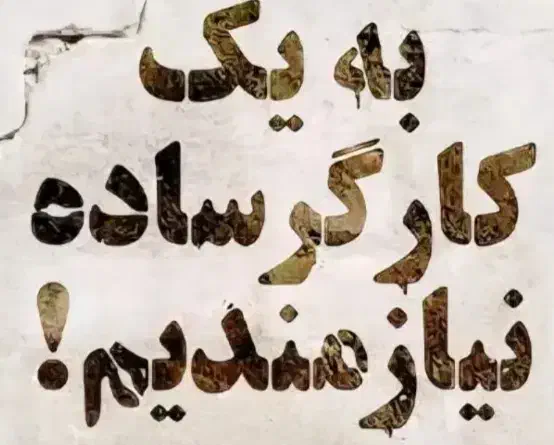 به یک
کارگر ساده
نیازمندیم!